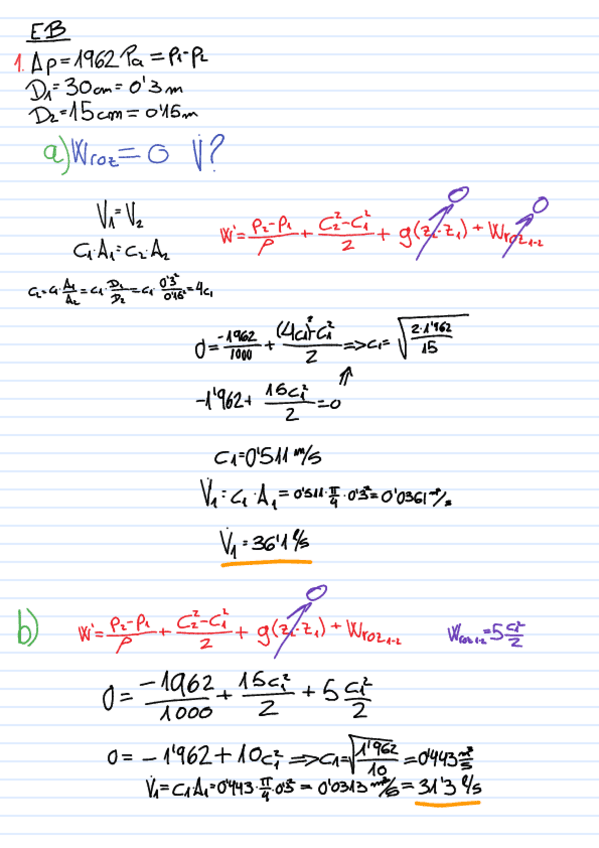 EB
1. Δp = 1962 Pa = p₁-p₂
D₁ = 30 cm = 0'3 m
D₂ = 15 cm = 0'15 m
a) Wroz = 0 V̇?
V̇₁ = V̇₂
C₁·A₁ = C₂·A₂
W = (p₂-p₁)/ρ + (C₂²-C₁²)/2 + g(z₂-z₁) + Wroz₁₋₂
0 0
C₂ = C₁·A₁/A₂ = C₁·D₁/D₂ = C₁·0'3²/0'15² = 4C₁
0 = -1962/1000 + ((4C₁)²-C₁²)/2 => C₁ = √(2·1'962/15)
-1'962 + 15C₁²/2 = 0
C₁ = 0'511 m/s
V̇₁ = C₁·A₁ = 0'511·π/4·0'3² = 0'0361 m³/s
V̇₁ = 36'1 ℓ/s
b) W = (p₂-p₁)/ρ + (C₂²-C₁²)/2 + g(z₂-z₁) + Wroz₁₋₂ Wroz₁₋₂ = 5 C₁²/2
0
0 = -1962/1000 + 15C₁²/2 + 5 C₁²/2
0 = -1'962 + 10C₁² => C₁ = √(1'962/10) = 0'443 m/s
V̇₁ = C₁A₁ = 0'443·π/4·0'3² = 0'0313 m³/s = 31'3 ℓ/s